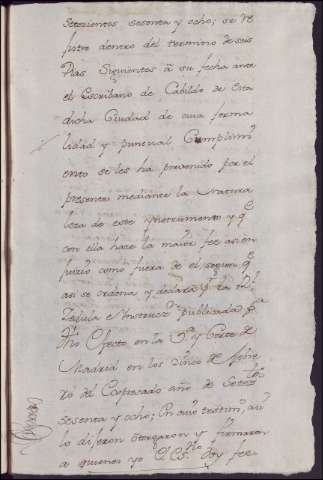 Setecientos sesenta y ocho; se re
fistro dentro del termino de seis
Dias Siguientes â su fecha ante
el Escribano de Cabildo de esta
dicha Ciudad de cuia forma
lidad y puntual Cumplimi
ento se les ha prevenido por el
presente mediante la Natura
leza de este Ynstrumento y q.e
con ella hace la maior fee asi en
Juizio como fuera de el segun q.e
asi se ordena y declara p.r la R.l
Zedula e Ynstruc.n publicada p.a
dho Efecto en la V.a y Corte de
Madrid en los
del Expresado año de Setec.tos
sesenta y ocho; En cuio testim.o asi
lo dijeron otorgaron y firmaron
a quienes yo el Es.no doy fee